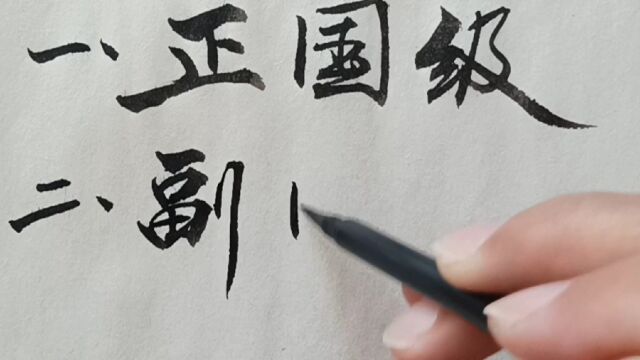 一、正国级
二、副